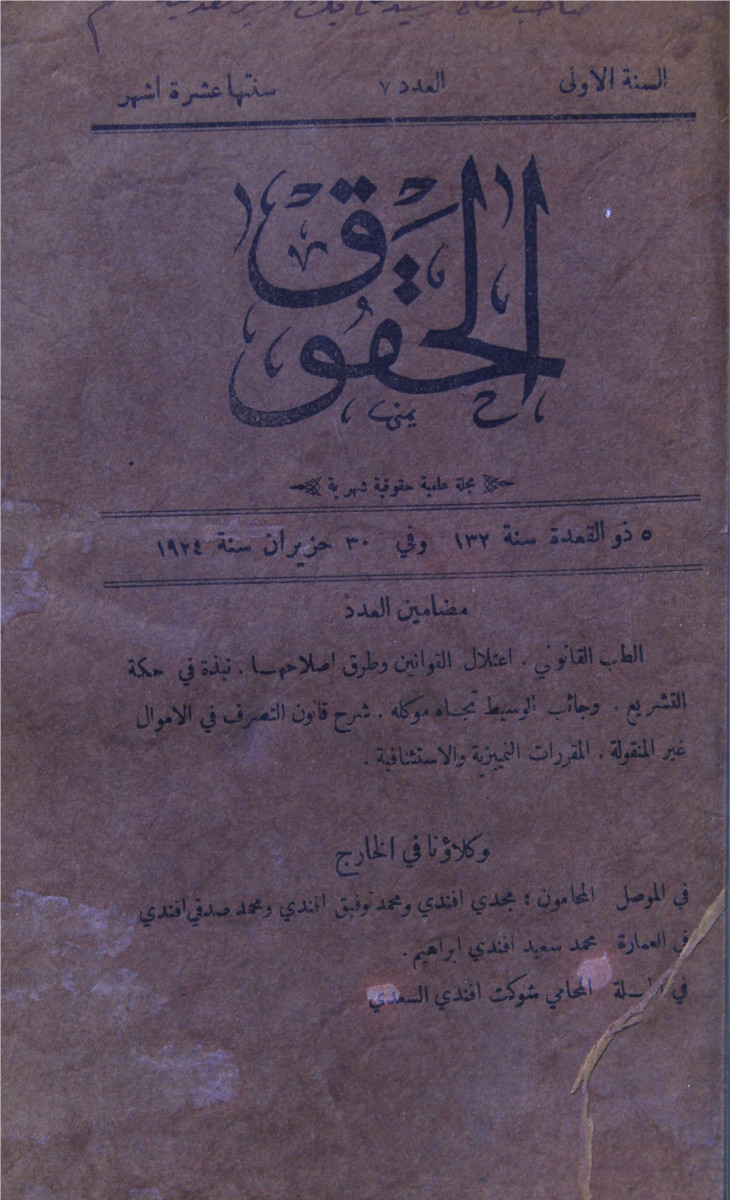 السنة الاولى العدد ٧ سنتها عشرة اشهر
الحقوق
يمنى
مجلة علمية حقوقية شهرية
٥ ذو القعدة سنة ١٣٢ وفي ٣٠ حزيران سنة ١٩٢٤
مضامين العدد
الطب القانوني . اعتلال القوانين وطرق اصلاحها . نبذة في حكمة
التشريع . وجائب الوسيط تجاه موكله . شرح قانون التصرف في الاموال
غير المنقولة . المقررات التمييزية والاستئنافية .
وكلاؤنا في الخارج
في الموصل المحامون : مجدي افندي ومحمد توفيق افندي ومحمد صدقي افندي
في العمارة محمد سعيد افندي ابراهيم .
في المحامي شوكت افندي السعدي